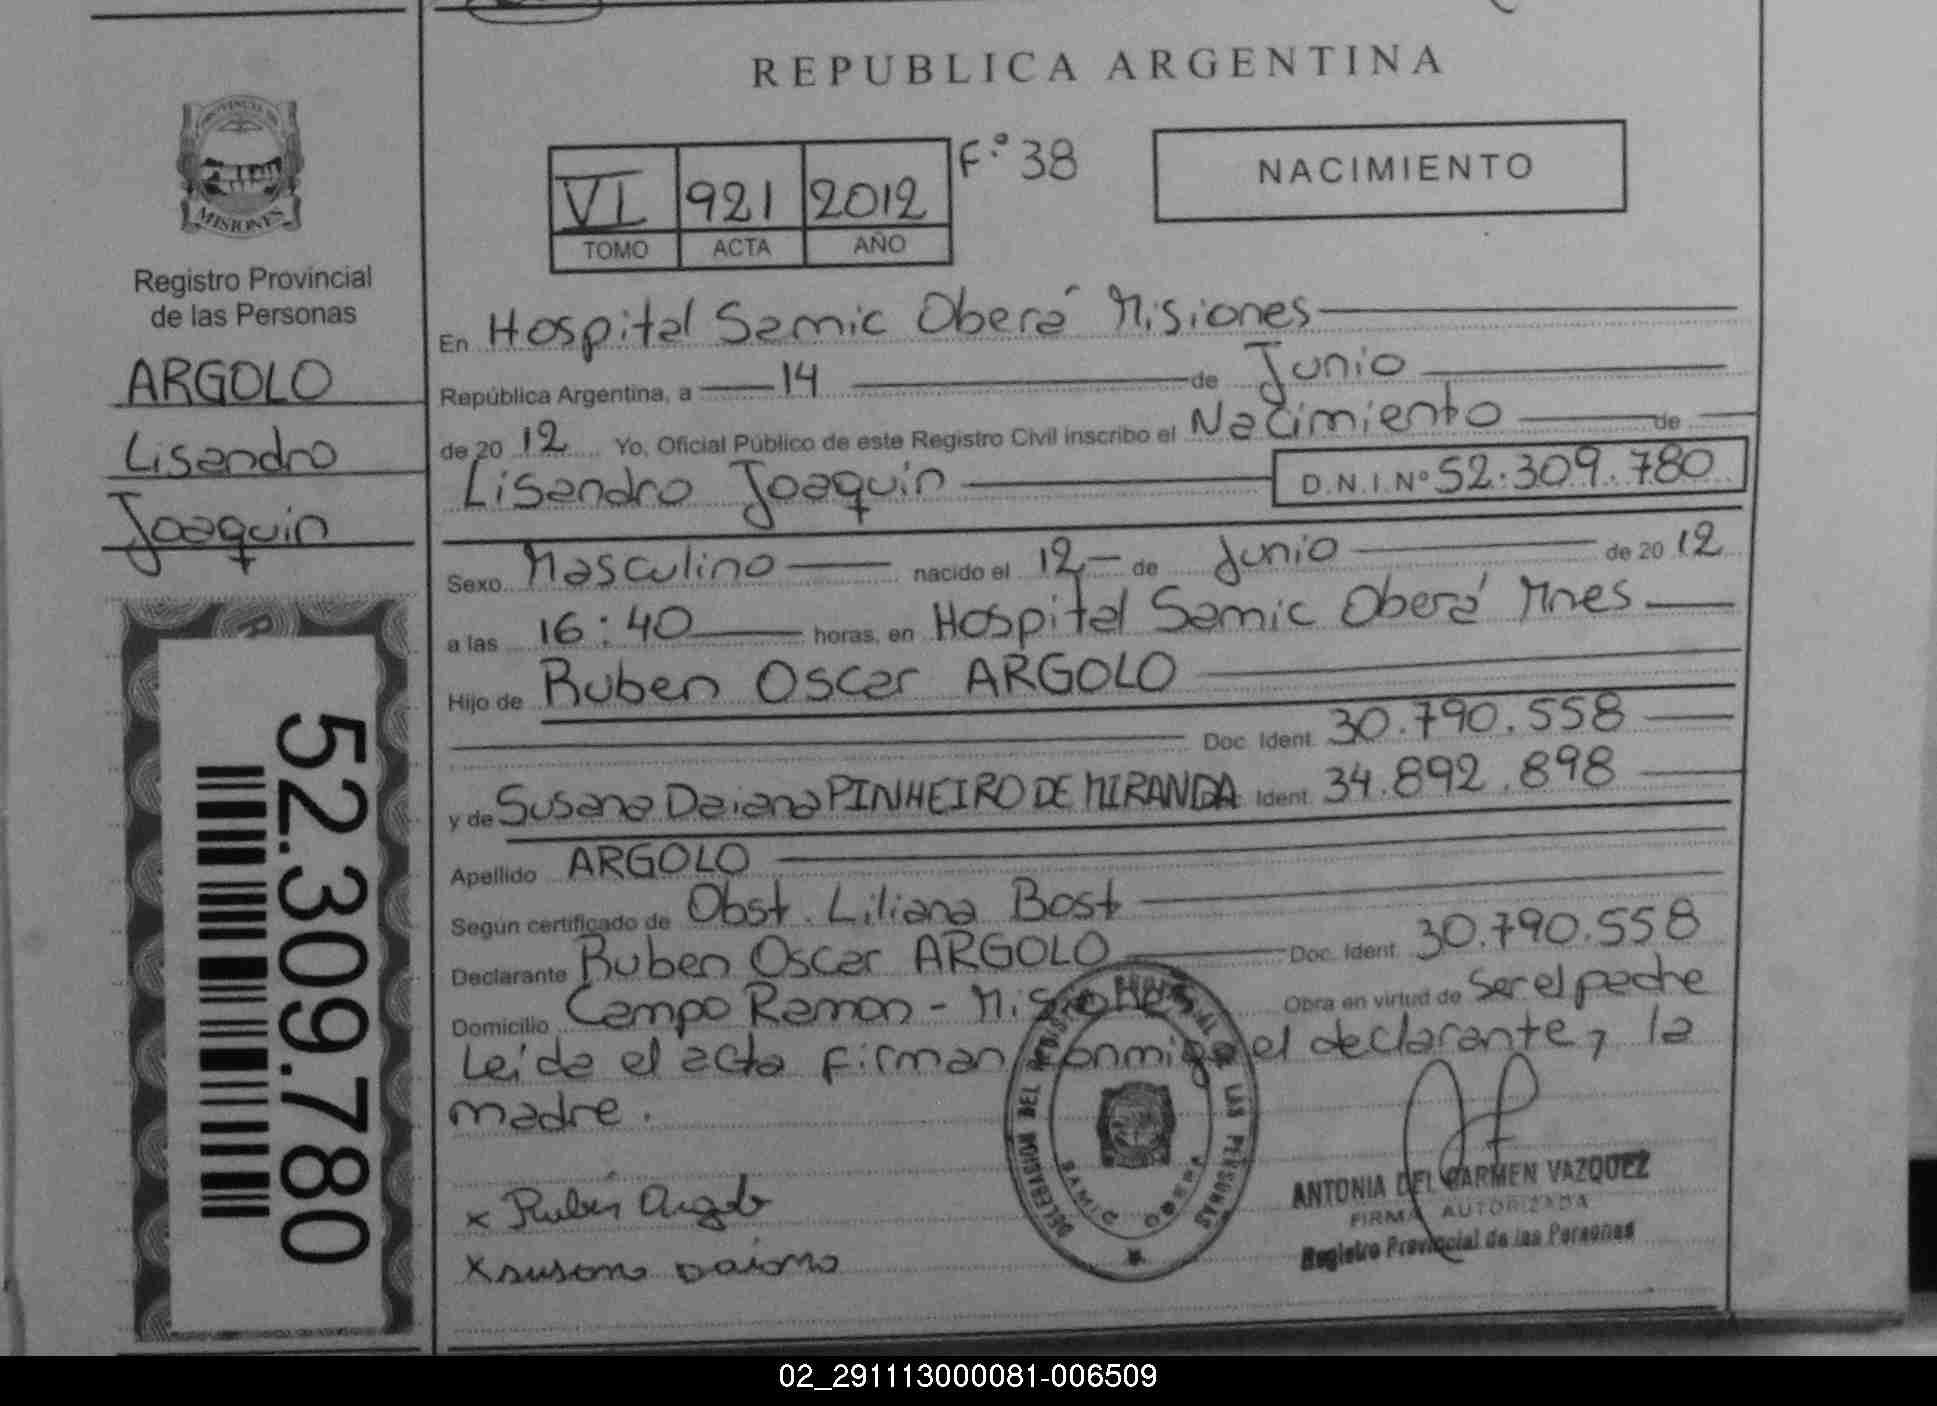 REPUBLICA ARGENTINA
PROVINCIA DE
MISIONES
Registro Provincial
de las Personas
ARGOLO
Lisandro
Joaquin
52.309.780
VI 921 2012 F.º 38
TOMO ACTA AÑO
NACIMIENTO
En Hospital Samic Oberá Misiones
República Argentina, a 14 de Junio
de 2012 Yo, Oficial Público de este Registro Civil inscribo el Nacimiento de
Lisandro Joaquin D.N.I.Nº 52.309.780
Sexo Masculino nacido el 12 de Junio de 2012
a las 16:40 horas, en Hospital Samic Oberá Mnes
Hijo de Ruben Oscar ARGOLO
Doc. Ident. 30.790.558
y de Susana Daiana PINHEIRO DE MIRANDA Ident. 34.892.898
Apellido ARGOLO
Según certificado de Obst. Liliana Bost
Declarante Ruben Oscar ARGOLO Doc. Ident. 30.790.558
Domicilio Campo Ramon - Misiones Obra en virtud de ser el padre
Leida el acta firman conmigo el declarante y la
madre.
x Rubén Argolo
x susana daiana
DELEGACION DEL REGISTRO PROVINCIAL DE LAS PERSONAS
SAMIC OBERA
ANTONIA DEL CARMEN VAZQUEZ
FIRMA AUTORIZADA
Registro Provincial de las Personas
02_291113000081-006509